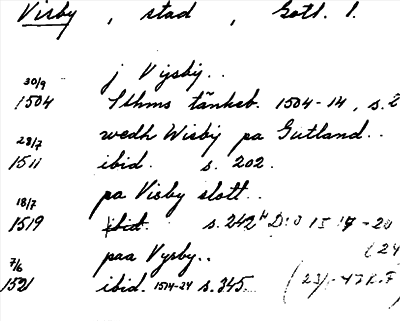 Visby, stad, Gotl. l.
30/9 j Vijsbij..
1504 Sthms tänkeb. 1504-14, s. 2
28/7 wedh Wisbij pa Gutland..
1511 ibid. s. 202.
18/7 pa Visby slott..
1519 ibid. s. 242 " D:o 1517-20
7/6 paa Vysby.. (24
1521 ibid. 1514-24 s. 345. (23/